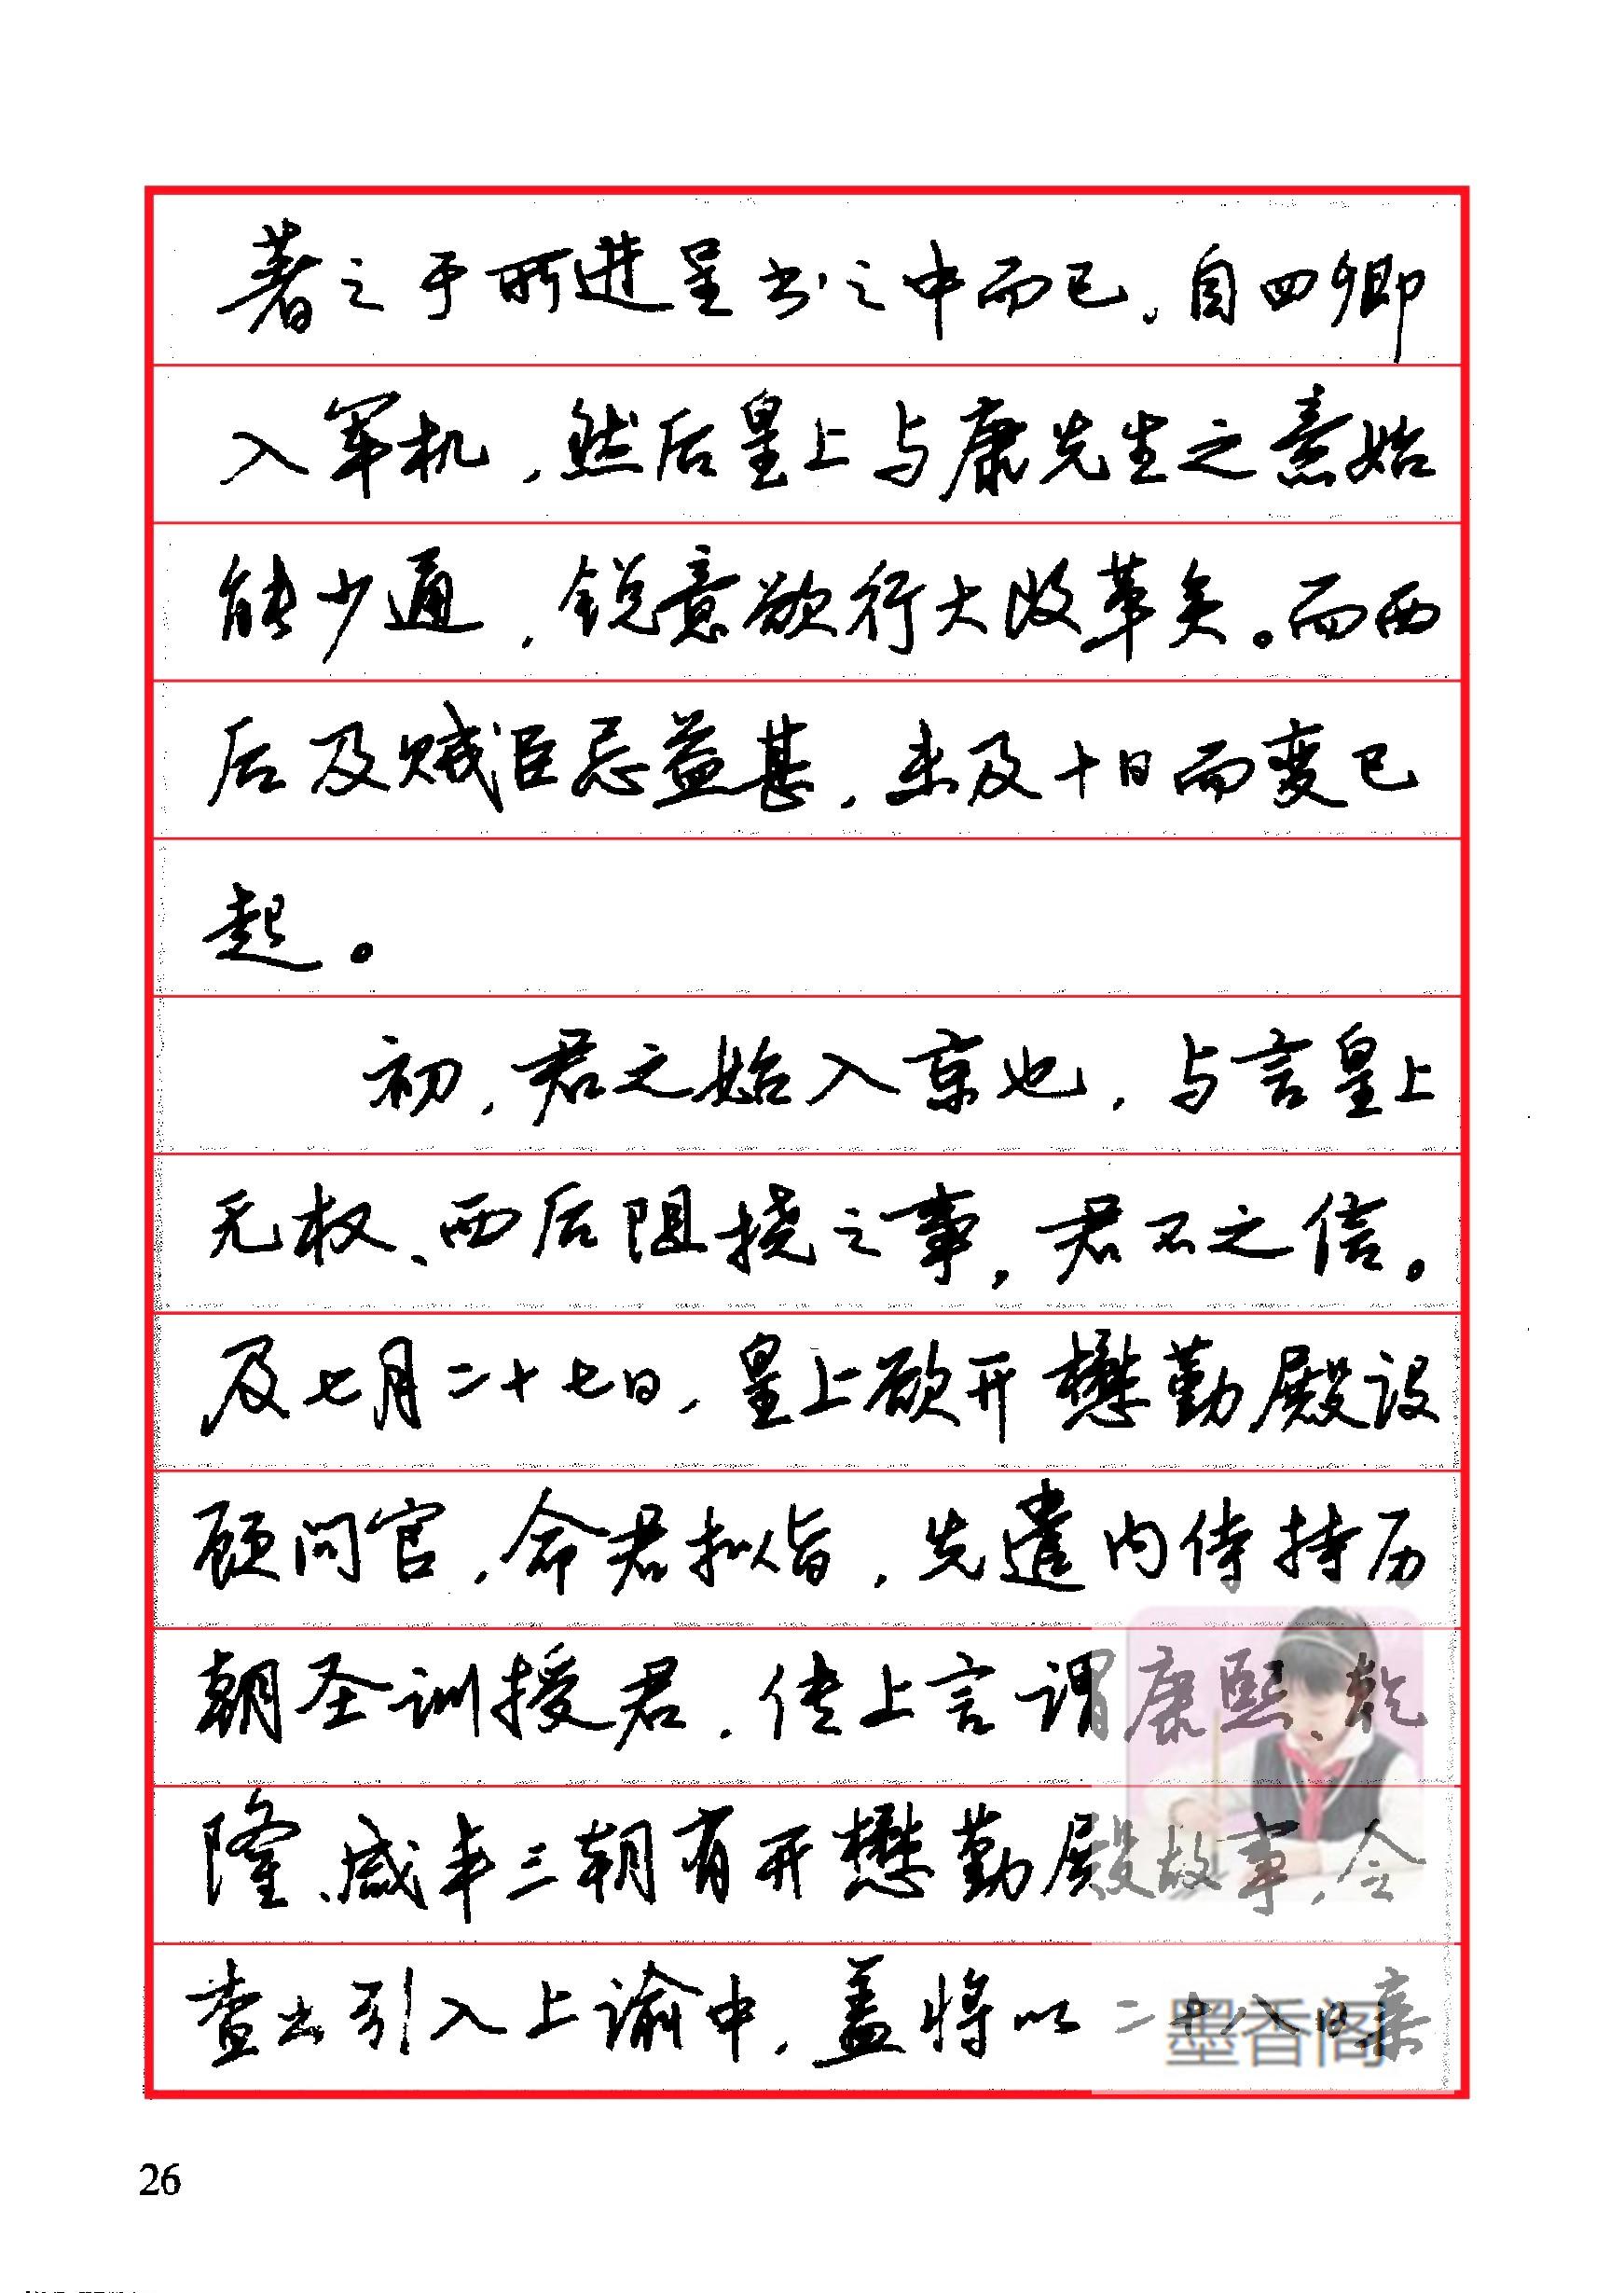 著之于所进呈书之中而已。自四卿
入军机，然后皇上与康先生之意始
能少通，锐意欲行大改革矣。而西
后及贼臣忌益甚，未及十日而变已
起。
初，君之始入京也，与言皇上
无权、西后阻挠之事，君不之信。
及七月二十七日，皇上欲开懋勤殿设
顾问官，命君拟旨，先遣内侍持历
朝圣训授君，传上言谓康熙、乾
隆、咸丰三朝有开懋勤殿故事，令
查出引入上谕中，盖将以二十八日亲
墨香阁
26